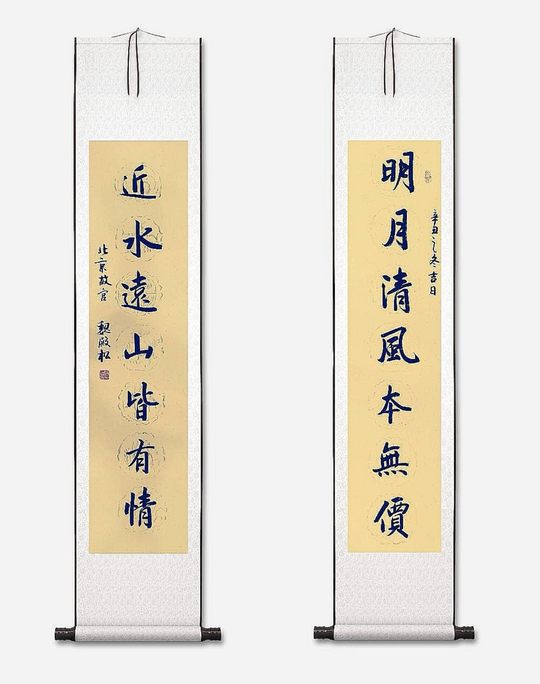 明月清風本無價
辛丑之冬吉日
近水遠山皆有情
北京故宮 魏殿松